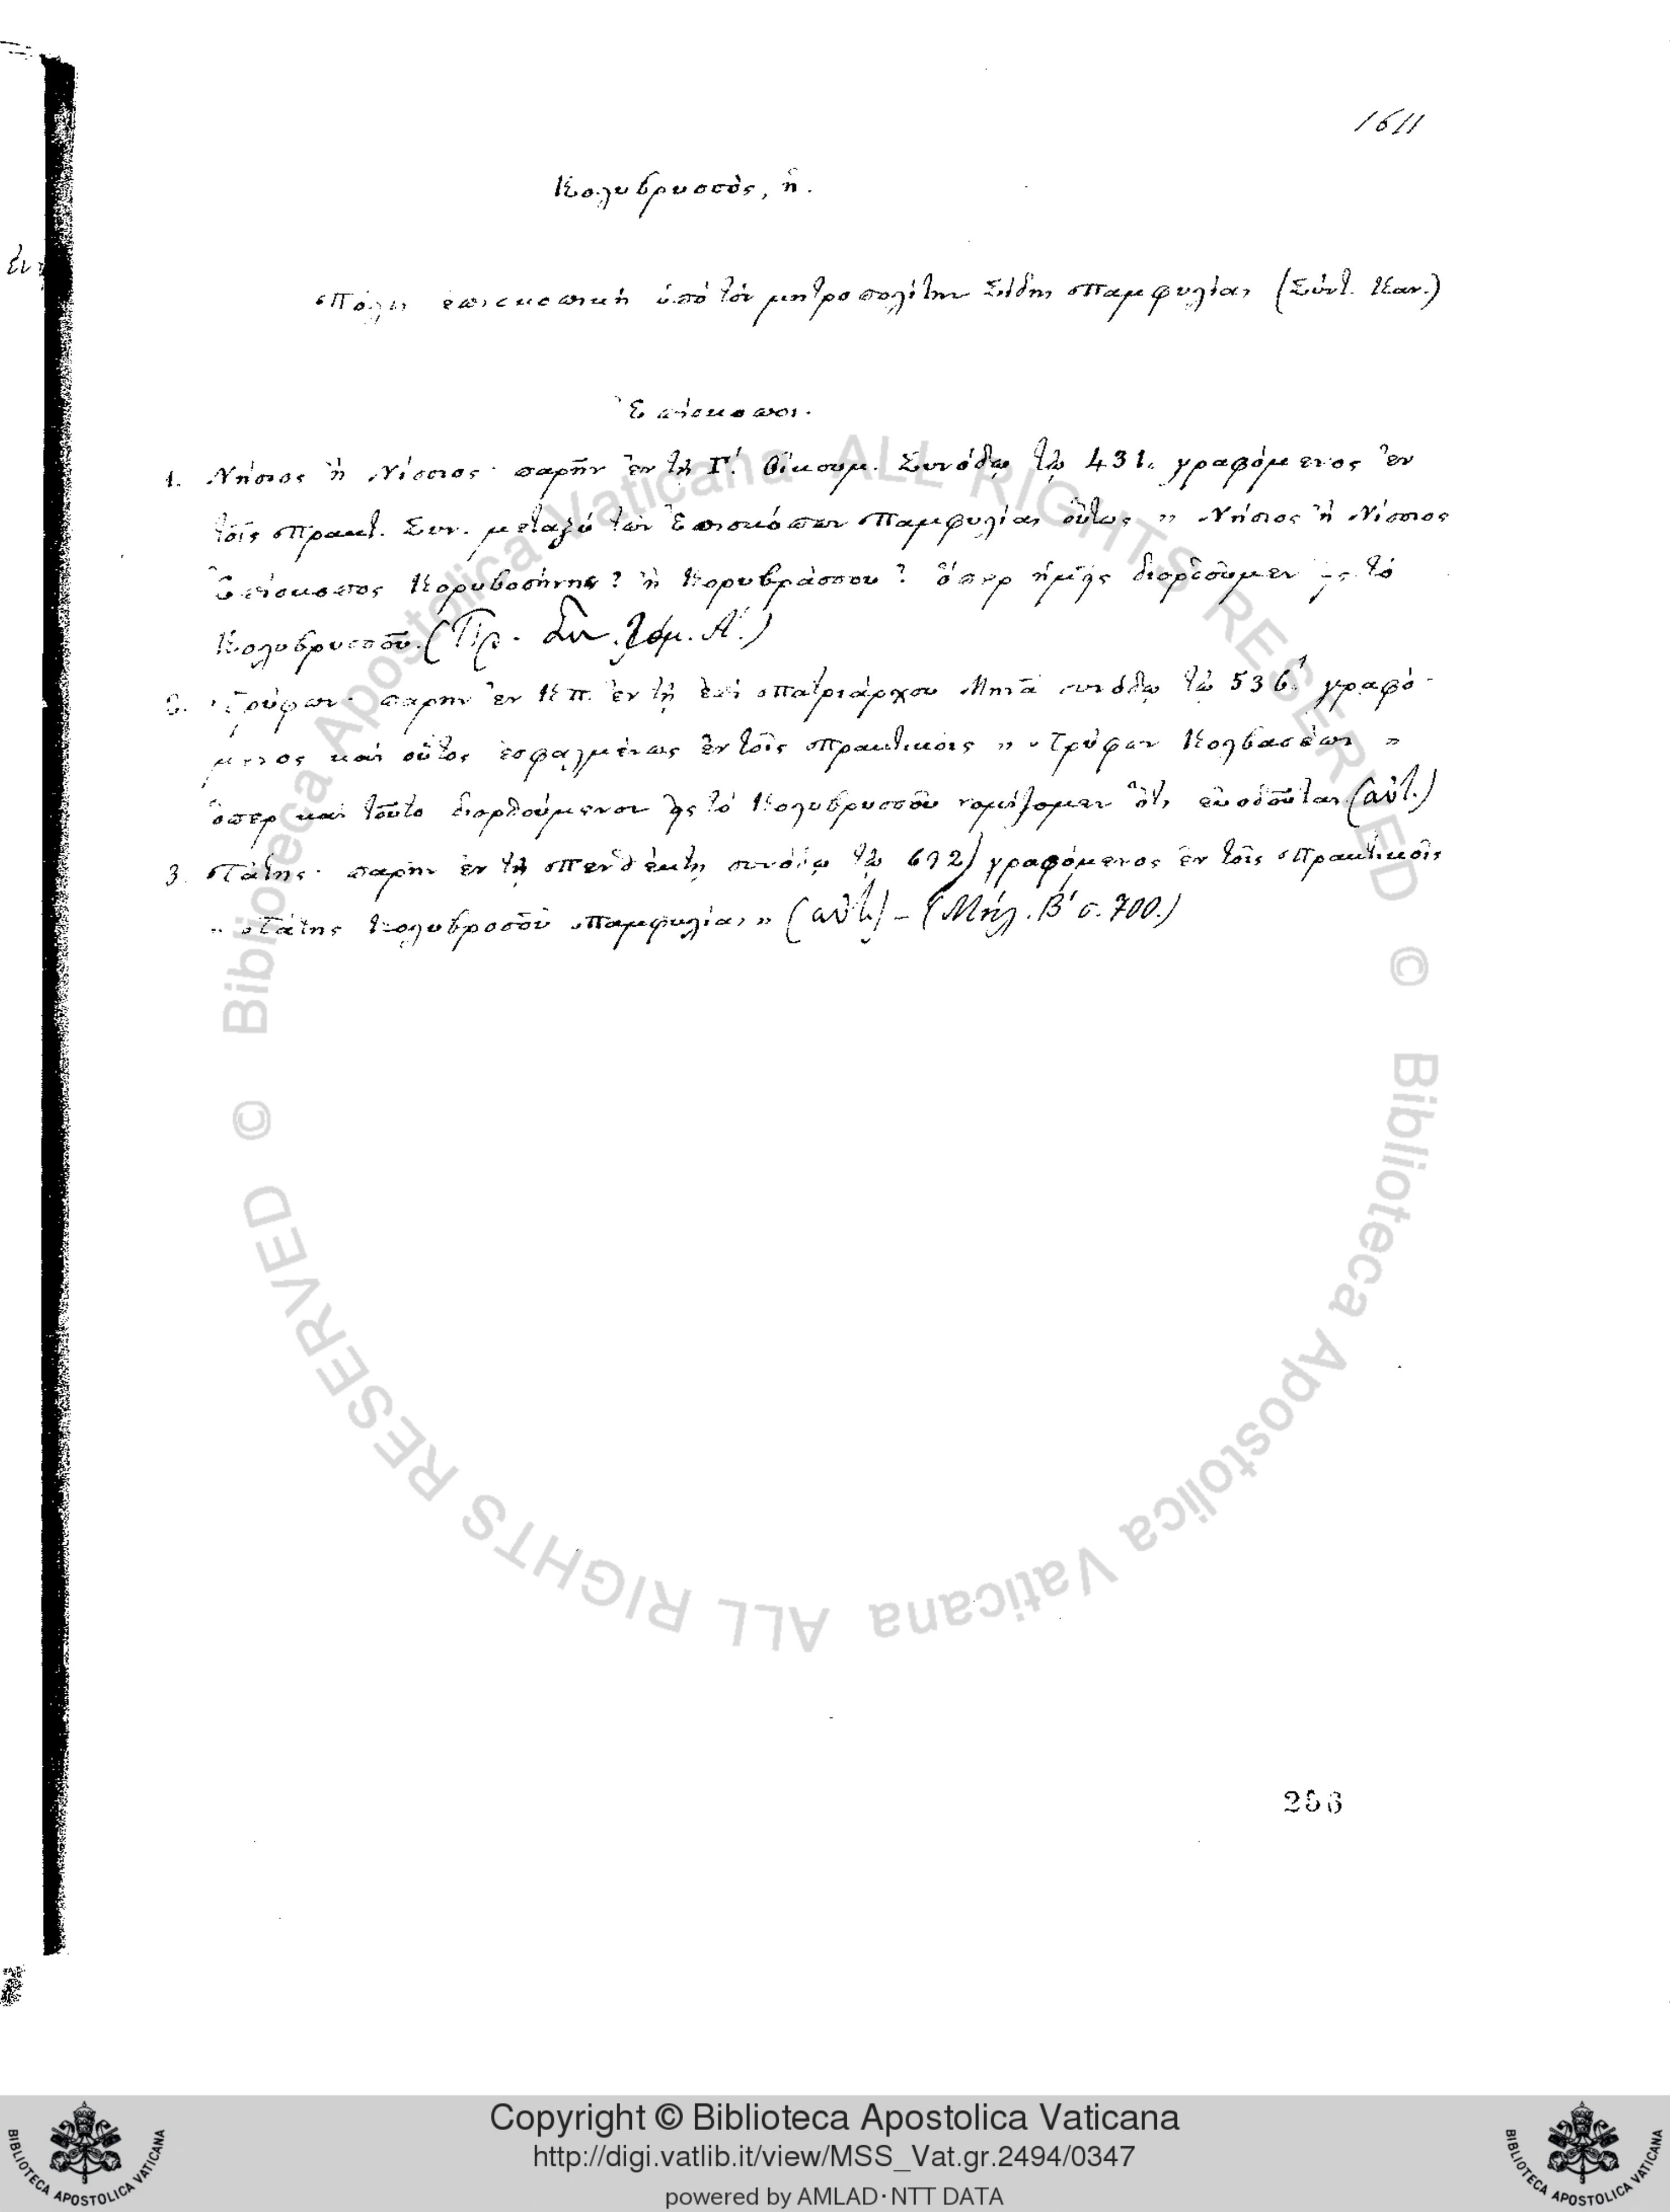 1611
Κολυβρυσσὸς, ἡ.
Πόλις ἐπισκοπικὴ ὑπὸ τὸν μητροπολίτην Σίδης Παμφυλίας (Σύντ. Καν.)
Ἐπίσκοποι.
1. Νήσιος ἢ Νίσσιος· παρῆν ἐν τῇ Γ΄. Οἰκουμ. Συνόδῳ τῷ 431. γραφόμενος ἐν
τοῖς Πρακτ. Συν. μεταξὺ τῶν Ἐπισκόπων Παμφυλίας οὕτως » Νήσιος ἢ Νίσσιος
Ἐπίσκοπος Κορυβοσήνης? ἢ Κορυβράσσου? ὅπερ ἡμεῖς διορθοῦμεν εἰς τὸ
Κολυβρυσσοῦ. (Πρ. Συν. τόμ. Α΄.)
2. Τρύφων· παρῆν ἐν Κπ. ἐν τῇ ἐπὶ Πατριάρχου Μηνᾶ συνόδῳ τῷ 536. γραφό-
μενος καὶ οὗτος ἐσφαλμένως ἐν τοῖς πρακτικοῖς » Τρύφων Κολβασέων »
ὅπερ καὶ τοῦτο διορθούμενον εἰς τὸ Κολυβρυσσοῦ νομίζομεν ὅτι εὐοδοῦται (αὐτ.)
3. Πάτης· παρῆν ἐν τῇ Πενθέκτῃ συνόδῳ τῷ 692) γραφόμενος ἐν τοῖς Πρακτικοῖς
» Πάτης Κολυβροσοῦ Παμφυλίας » (αὐτ.) – (Μήλ. Β΄ σ. 700.)
256
© Biblioteca Apostolica Vaticana ALL RIGHTS RESERVED © Biblioteca Apostolica Vaticana ALL RIGHTS RESERVED
Copyright © Biblioteca Apostolica Vaticana
http://digi.vatlib.it/view/MSS_Vat.gr.2494/0347
powered by AMLAD·NTT DATA
BIBLIOTECA APOSTOLICA VATICANA
BIBLIOTECA APOSTOLICA VATICANA